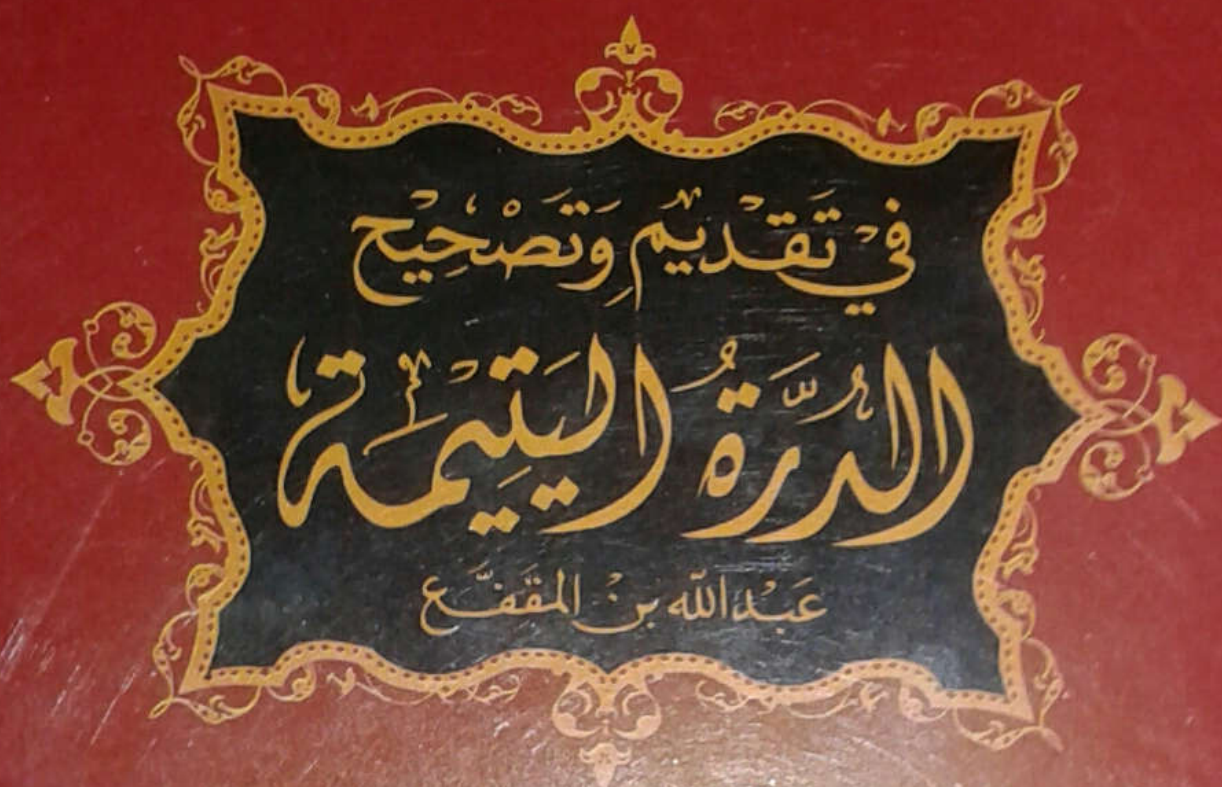 في تَقْديمٍ وَتَصْحيحِ
الدُّرَّةُ اليَتيمَة
عَبْدالله بنْ المقَفَّع